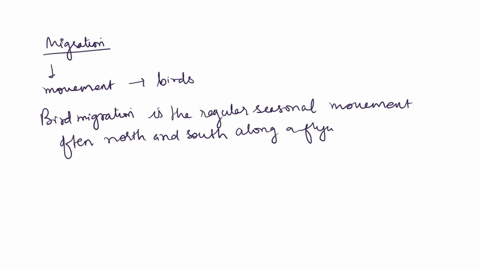 Migration
↓
movement → birds
Bird migration is the regular seasonal movement
often north and south along a flyw